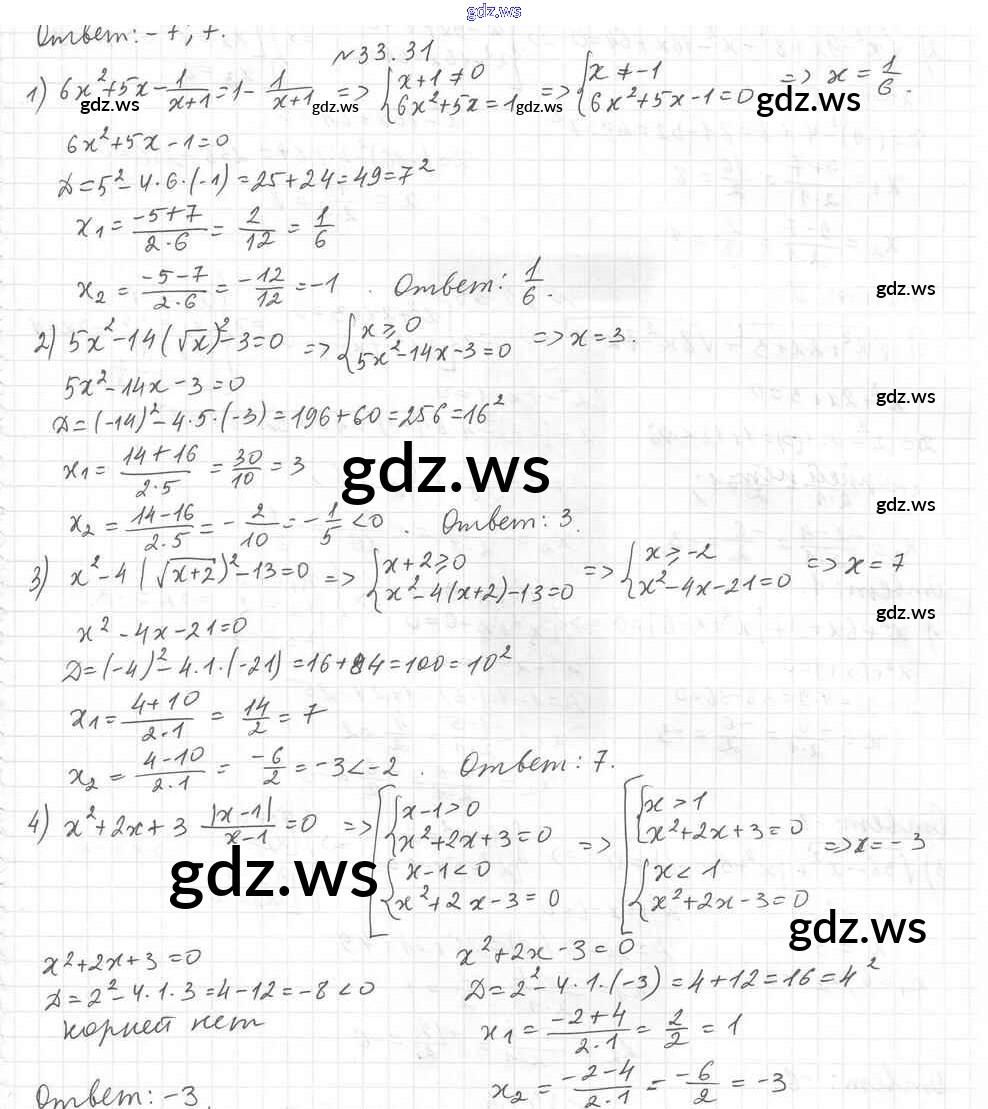 gdz.ws
Ответ: - +; +.
№33.31
1) 6x²+5x - 1/(x+1) = 1 - 1/(x+1) => {x+1≠0 {6x²+5x=1 => {x≠-1 {6x²+5x-1=0 => x = 1/6.
gdz.ws gdz.ws gdz.ws gdz.ws
6x²+5x-1=0
Д=5²-4·6·(-1)=25+24=49=7²
x₁ = (-5+7)/(2·6) = 2/12 = 1/6
x₂ = (-5-7)/(2·6) = -12/12 = -1. Ответ: 1/6.
gdz.ws
2) 5x²-14(√x)²-3=0 => {x⩾0 {5x²-14x-3=0 => x=3.
5x²-14x-3=0
gdz.ws
Д=(-14)²-4·5·(-3)=196+60=256=16²
x₁ = (14+16)/(2·5) = 30/10 = 3
gdz.ws
gdz.ws
x₂ = (14-16)/(2·5) = -2/10 = -1/5 < 0. Ответ: 3.
3) x²-4(√(x+2))²-13=0 => {x+2⩾0 {x²-4(x+2)-13=0 => {x⩾-2 {x²-4x-21=0 => x=7
gdz.ws
x²-4x-21=0
Д=(-4)²-4·1·(-21)=16+84=100=10²
x₁ = (4+10)/(2·1) = 14/2 = 7
x₂ = (4-10)/(2·1) = -6/2 = -3<-2. Ответ: 7.
4) x²+2x+3 |x-1|/(x-1) = 0 => [{x-1>0 {x²+2x+3=0 {x-1<0 {x²+2x-3=0 => [{x>1 {x²+2x+3=0 {x<1 {x²+2x-3=0 => x=-3
gdz.ws
gdz.ws
x²+2x+3=0
x²+2x-3=0
Д=2²-4·1·3=4-12=-8<0
Д=2²-4·1·(-3)=4+12=16=4²
корней нет
x₁ = (-2+4)/(2·1) = 2/2 = 1
x₂ = (-2-4)/(2·1) = -6/2 = -3
Ответ: -3.